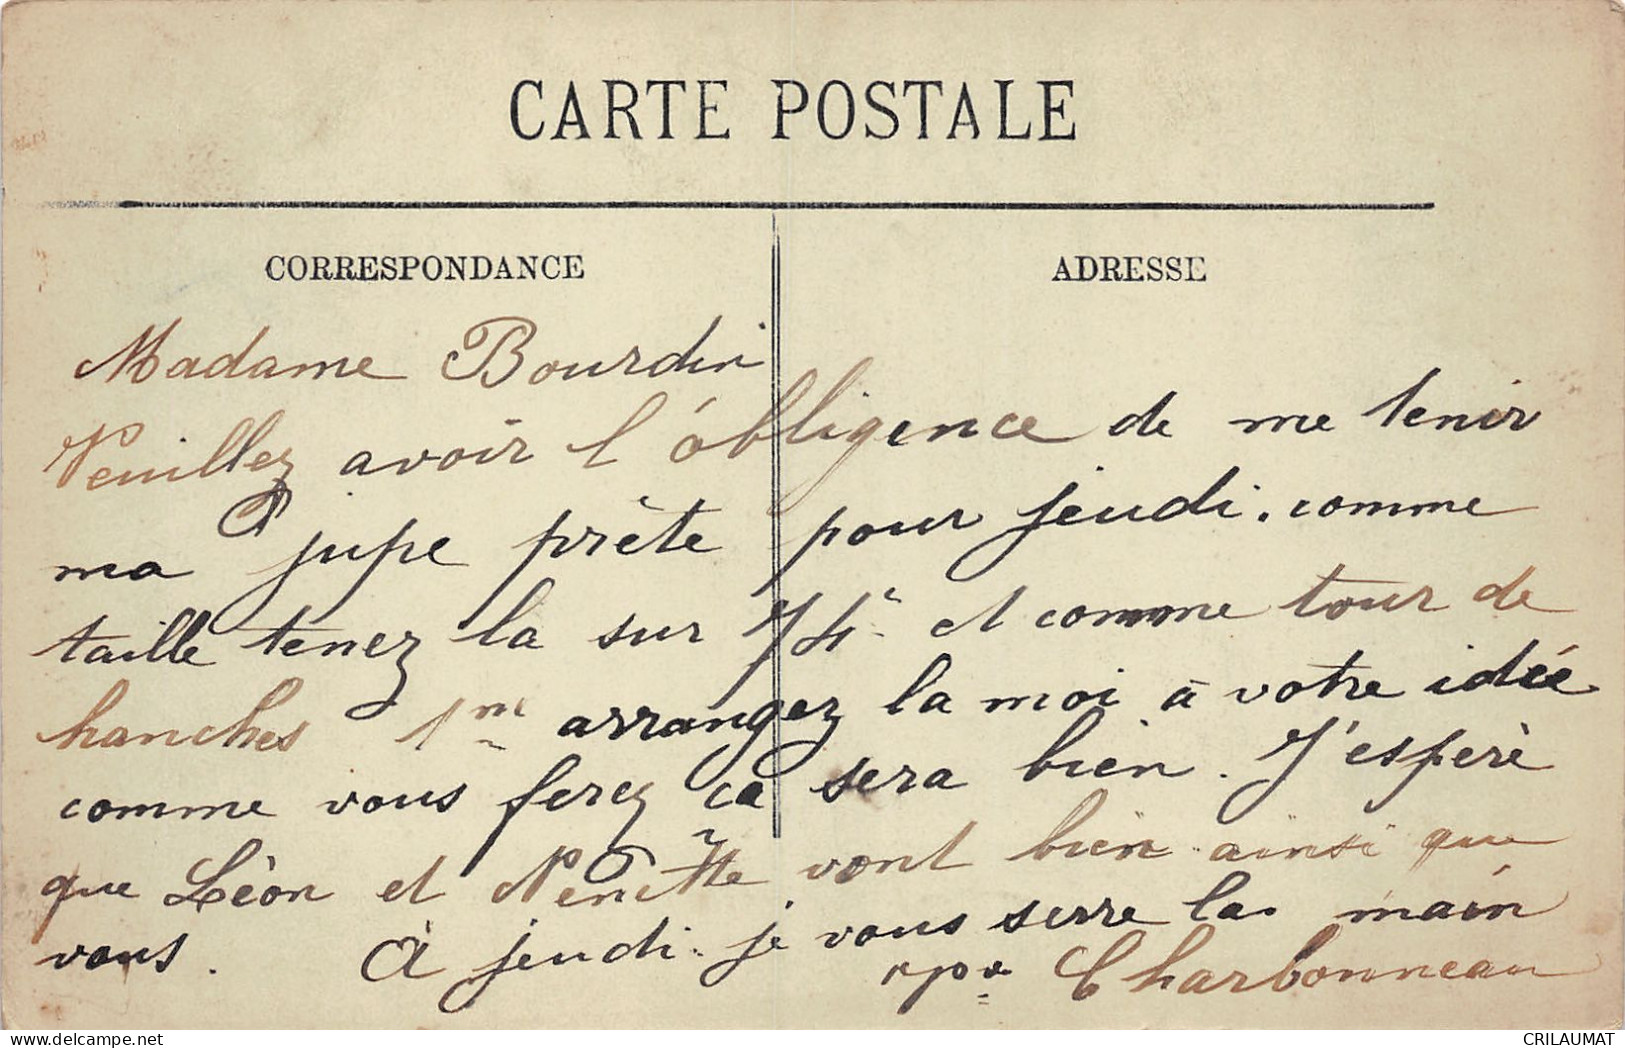 CARTE POSTALE
CORRESPONDANCE
ADRESSE
Madame Bourdin
Veuillez avoir l'obligence de me tenir
ma jupe prête pour jeudi. comme
taille tenez la sur 74 et comme tour de
hanches 1m arrangez la moi à votre idée
comme vous ferez ça sera bien. J'esperè
que Lèon et Nenètte vont bien ainsi que
vous. À jeudi. je vous serre la main
Charbonneau
delcampe.net
CRILAUMAT